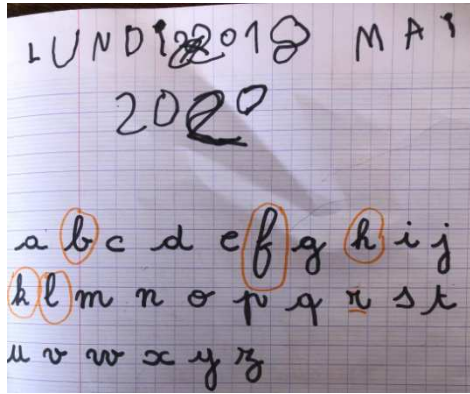 LUNDi MAi
2020
a b c d e f g h i j
k l m n o p q r s t
u v w x y z